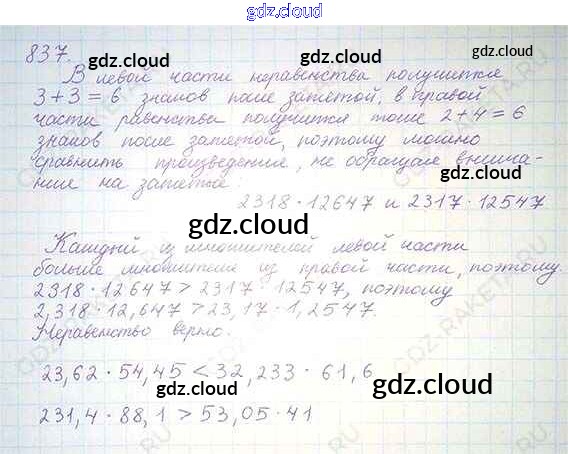 gdz.cloud
837.
gdz.cloud gdz.cloud
В левой части неравенства получится
3+3=6 знаков после запятой, в правой
части равенства получится тоже 2+4=6
знаков после запятой, поэтому можно
сравнить произведение, не обращая внима-
ние на запятые:
2318·12647 и 2317·12547
gdz.cloud
Каждый из множителей левой части
больше множителя из правой части, поэтому
2318·12647>2317·12547, поэтому
2,318·12,647>23,17·1,2547.
Неравенство верно.
gdz.cloud gdz.cloud
23,62·54,45<32,233·61,6
gdz.cloud
231,4·88,1>53,05·41